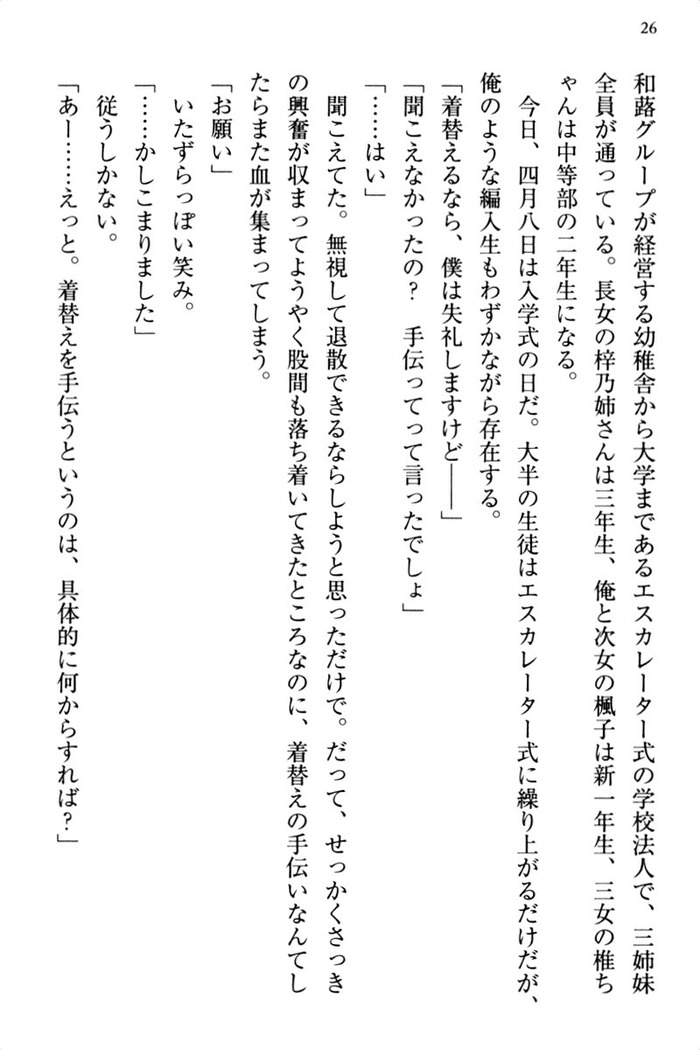 26
和蕗グループが経営する幼稚舎から大学まであるエスカレーター式の学校法人で、三姉妹
全員が通っている。長女の梓乃姉さんは三年生、俺と次女の楓子は新一年生、三女の椎ち
ゃんは中等部の二年生になる。
　今日、四月八日は入学式の日だ。大半の生徒はエスカレーター式に繰り上がるだけだが、
俺のような編入生もわずかながら存在する。
「着替えるなら、僕は失礼しますけど――」
「聞こえなかったの？　手伝ってって言ったでしょ」
「……はい」
　聞こえてた。無視して退散できるならしようと思っただけで。だって、せっかくさっき
の興奮が収まってようやく股間も落ち着いてきたところなのに、着替えの手伝いなんてし
たらまた血が集まってしまう。
「お願い」
　いたずらっぽい笑み。
「……かしこまりました」
　従うしかない。
「あー……えっと。着替えを手伝うというのは、具体的に何からすれば？」